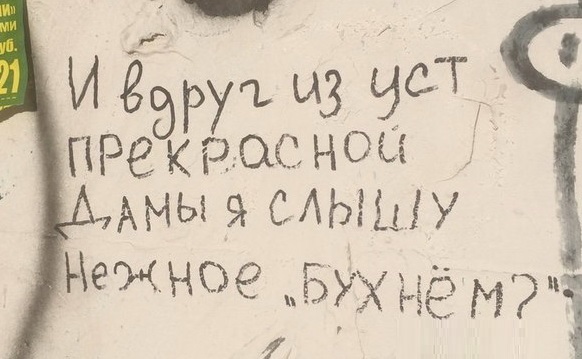 И вдруг из уст
прекрасной
Дамы я слышу
Нежное „БУХНЁМ?".
21